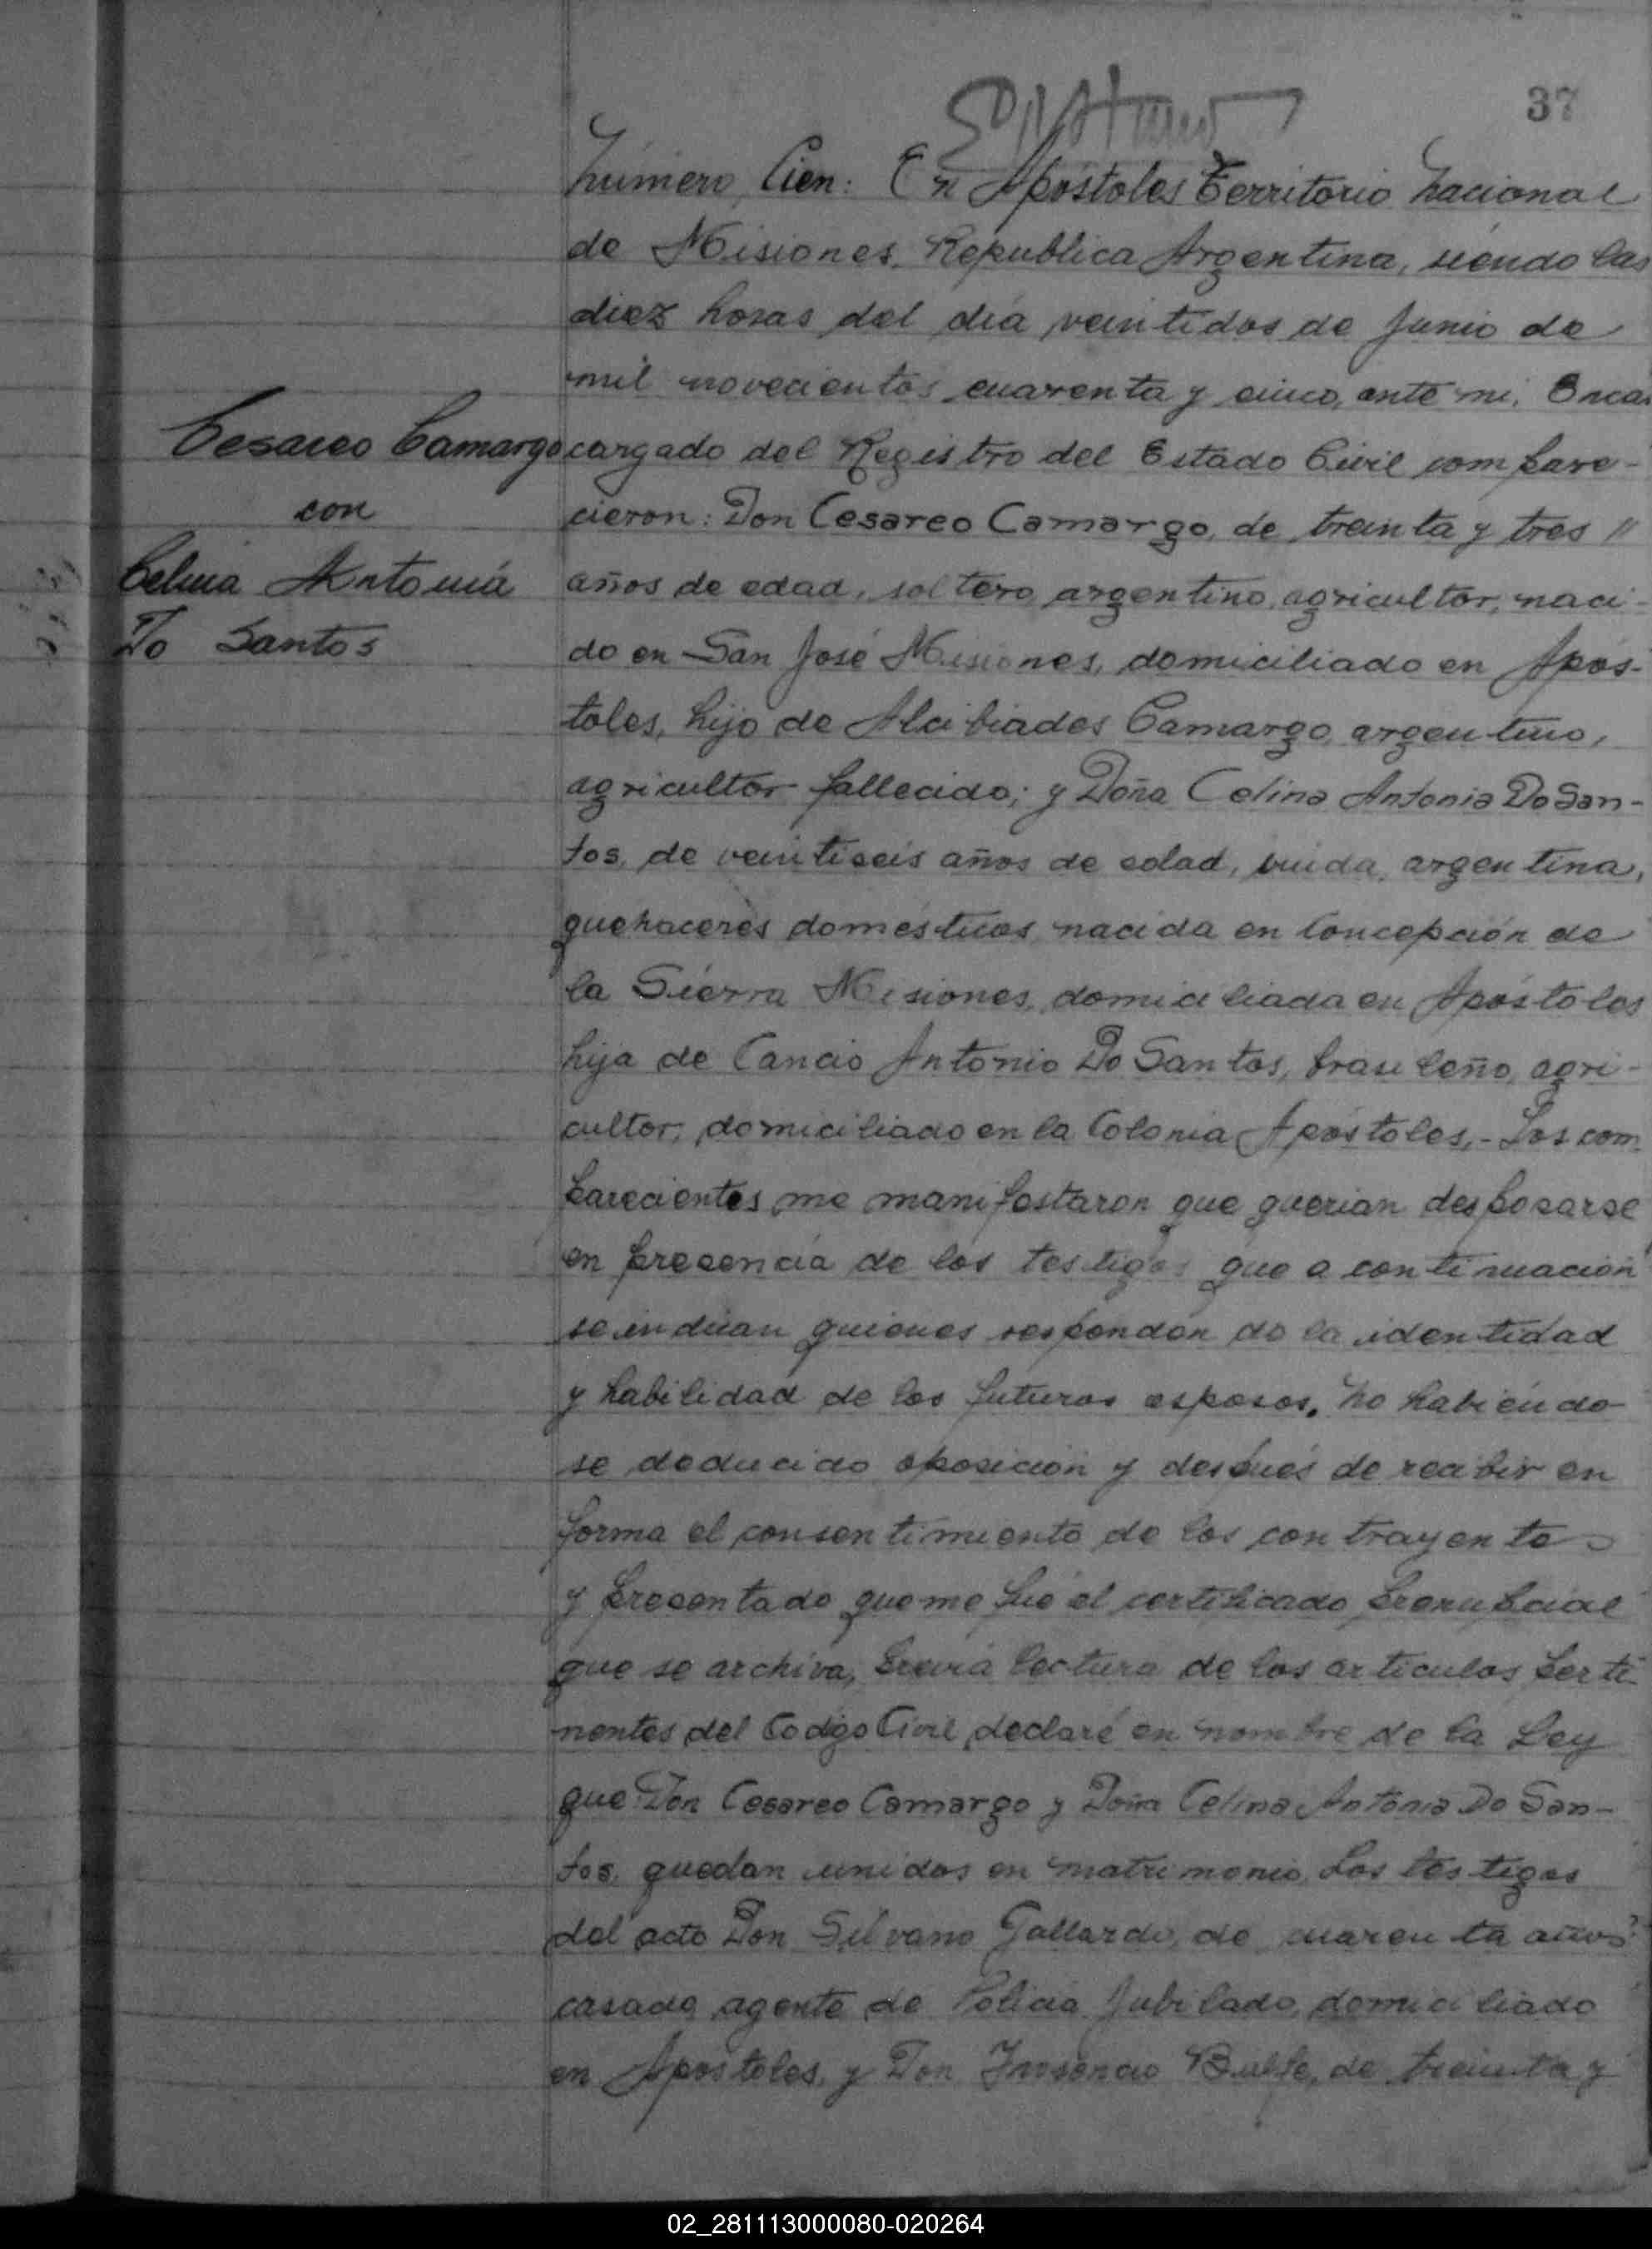 37
Número Cien: En Apóstoles Territorio Nacional
de Misiones, Republica Argentina, siendo las
diez horas del día veintidos de Junio de
mil novecientos cuarenta y cinco, ante mi, Enca
Cesareo Camargo
con
Celina Antonia
Do Santos
cargado del Registro del Estado Civil compare-
cieron: Don Cesareo Camargo, de treinta y tres "
años de edad, soltero, argentino, agricultor, naci-
do en San José Misiones, domiciliado en Após-
toles, hijo de Alcibiades Camargo, argentino,
agricultor fallecido; y Doña Celina Antonia Do San-
tos, de veintiseis años de edad, viuda, argentina,
quehaceres domésticos, nacida en Concepción de
la Sierra Misiones, domiciliada en Apóstoles
hija de Cancio Antonio Do Santos, brasileño, agri-
cultor, domiciliado en la Colonia Apóstoles.- Los com
parecientes me manifestaron que querian desposarse
en presencia de los testigos que a continuación
se indican quienes responden de la identidad
y habilidad de los futuros esposos. No habiendo
se deducido oposición y después de recibir en
forma el consentimiento de los contrayentes
y presentado que me fué el certificado prenupcial
que se archiva, previa lectura de los articulos perti-
nentes del Codigo Civil, declaré en nombre de la Ley
que Don Cesareo Camargo y Doña Celina Antonia Do San-
tos, quedan unidos en matrimonio. Los testigos
del acto Don Silvano Gallardo, de cuarenta años
casado, agente de Policia Jubilado, domiciliado
en Apóstoles, y Don de treinta y
02_281113000080-020264